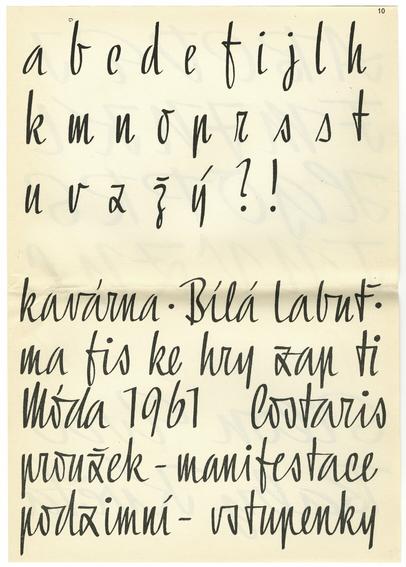 10
a b c d e f i j l h
k m n o p r s s t
u v z ž ý ? !
kavárna · Bílá labuť ·
ma fis ke hry zap ti
Móda 1961 Costaris
proužek - manifestace
podzimní - vstupenky